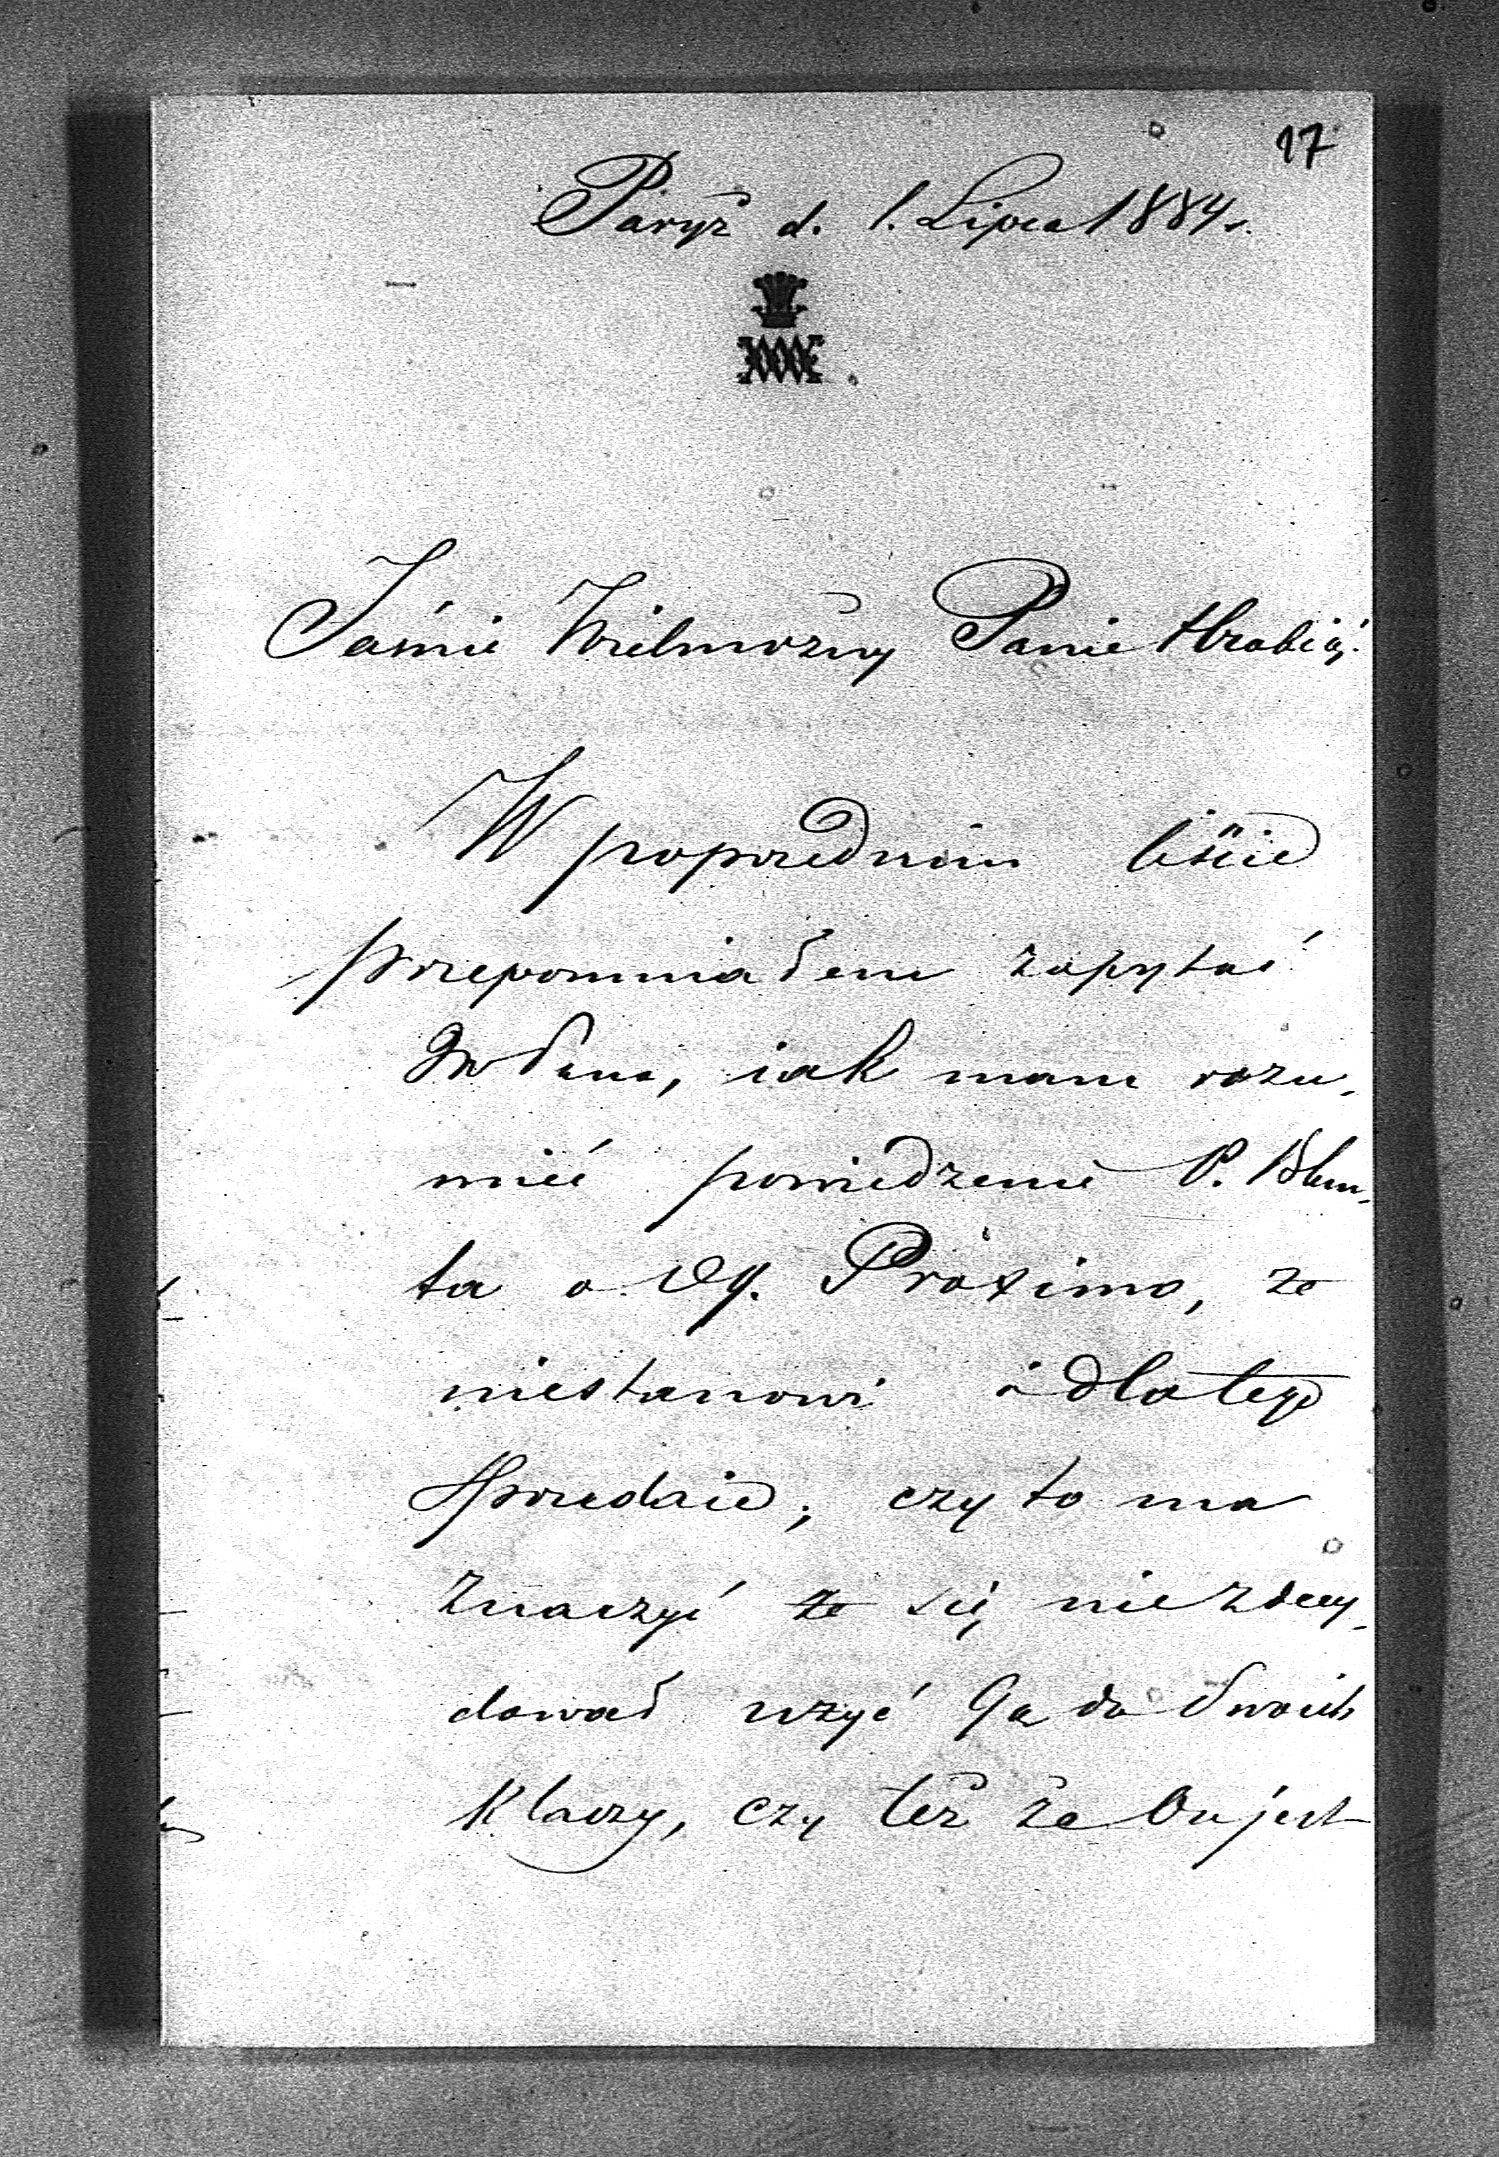 17
Paryż d. 1. Lipca 1884 r.
Jaśnie Wielmożny Panie Hrabio!
W poprzednim liście
przepomniałem zapytać
JW Pana, iak mam rozu-
mieć powiedzenie P. Blun-
ta o Og. Proximo, że
niestanowi i dlatego
sprzedaie; czy to ma
znaczyć że się niezdecy-
dował użyć Go do swoich
Klaczy, czy też że On jest